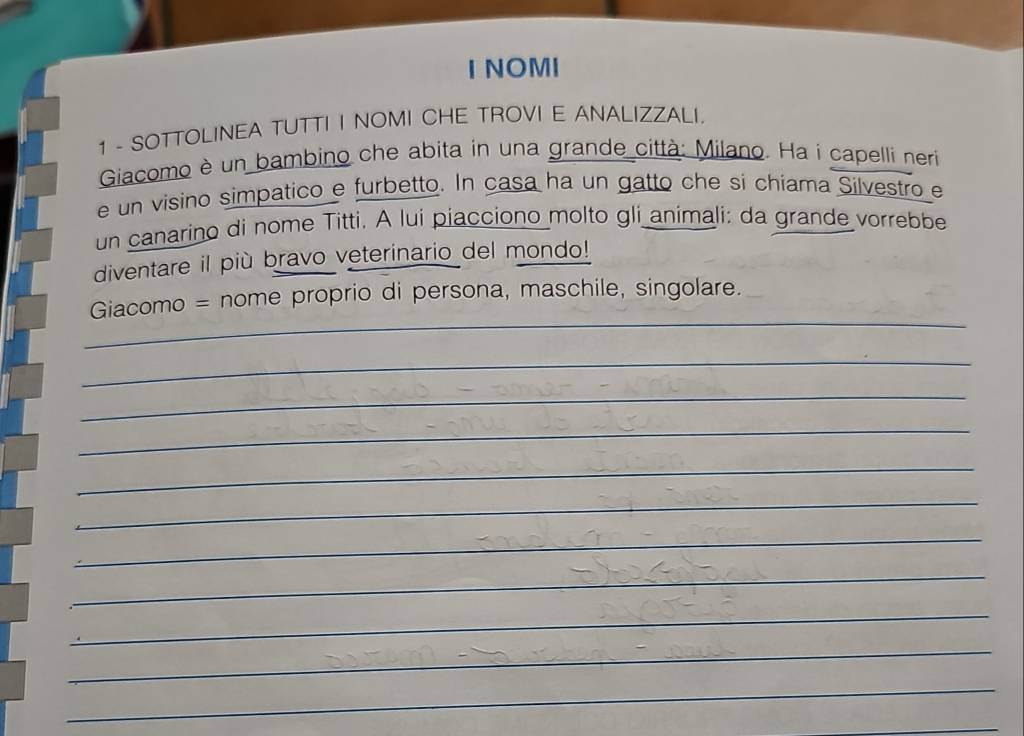 I NOMI
1 - SOTTOLINEA TUTTI I NOMI CHE TROVI E ANALIZZALI.
Giacomo è un bambino che abita in una grande città: Milano. Ha i capelli neri
e un visino simpatico e furbetto. In casa ha un gatto che si chiama Silvestro e
un canarino di nome Titti. A lui piacciono molto gli animali: da grande vorrebbe
diventare il più bravo veterinario del mondo!
Giacomo = nome proprio di persona, maschile, singolare.